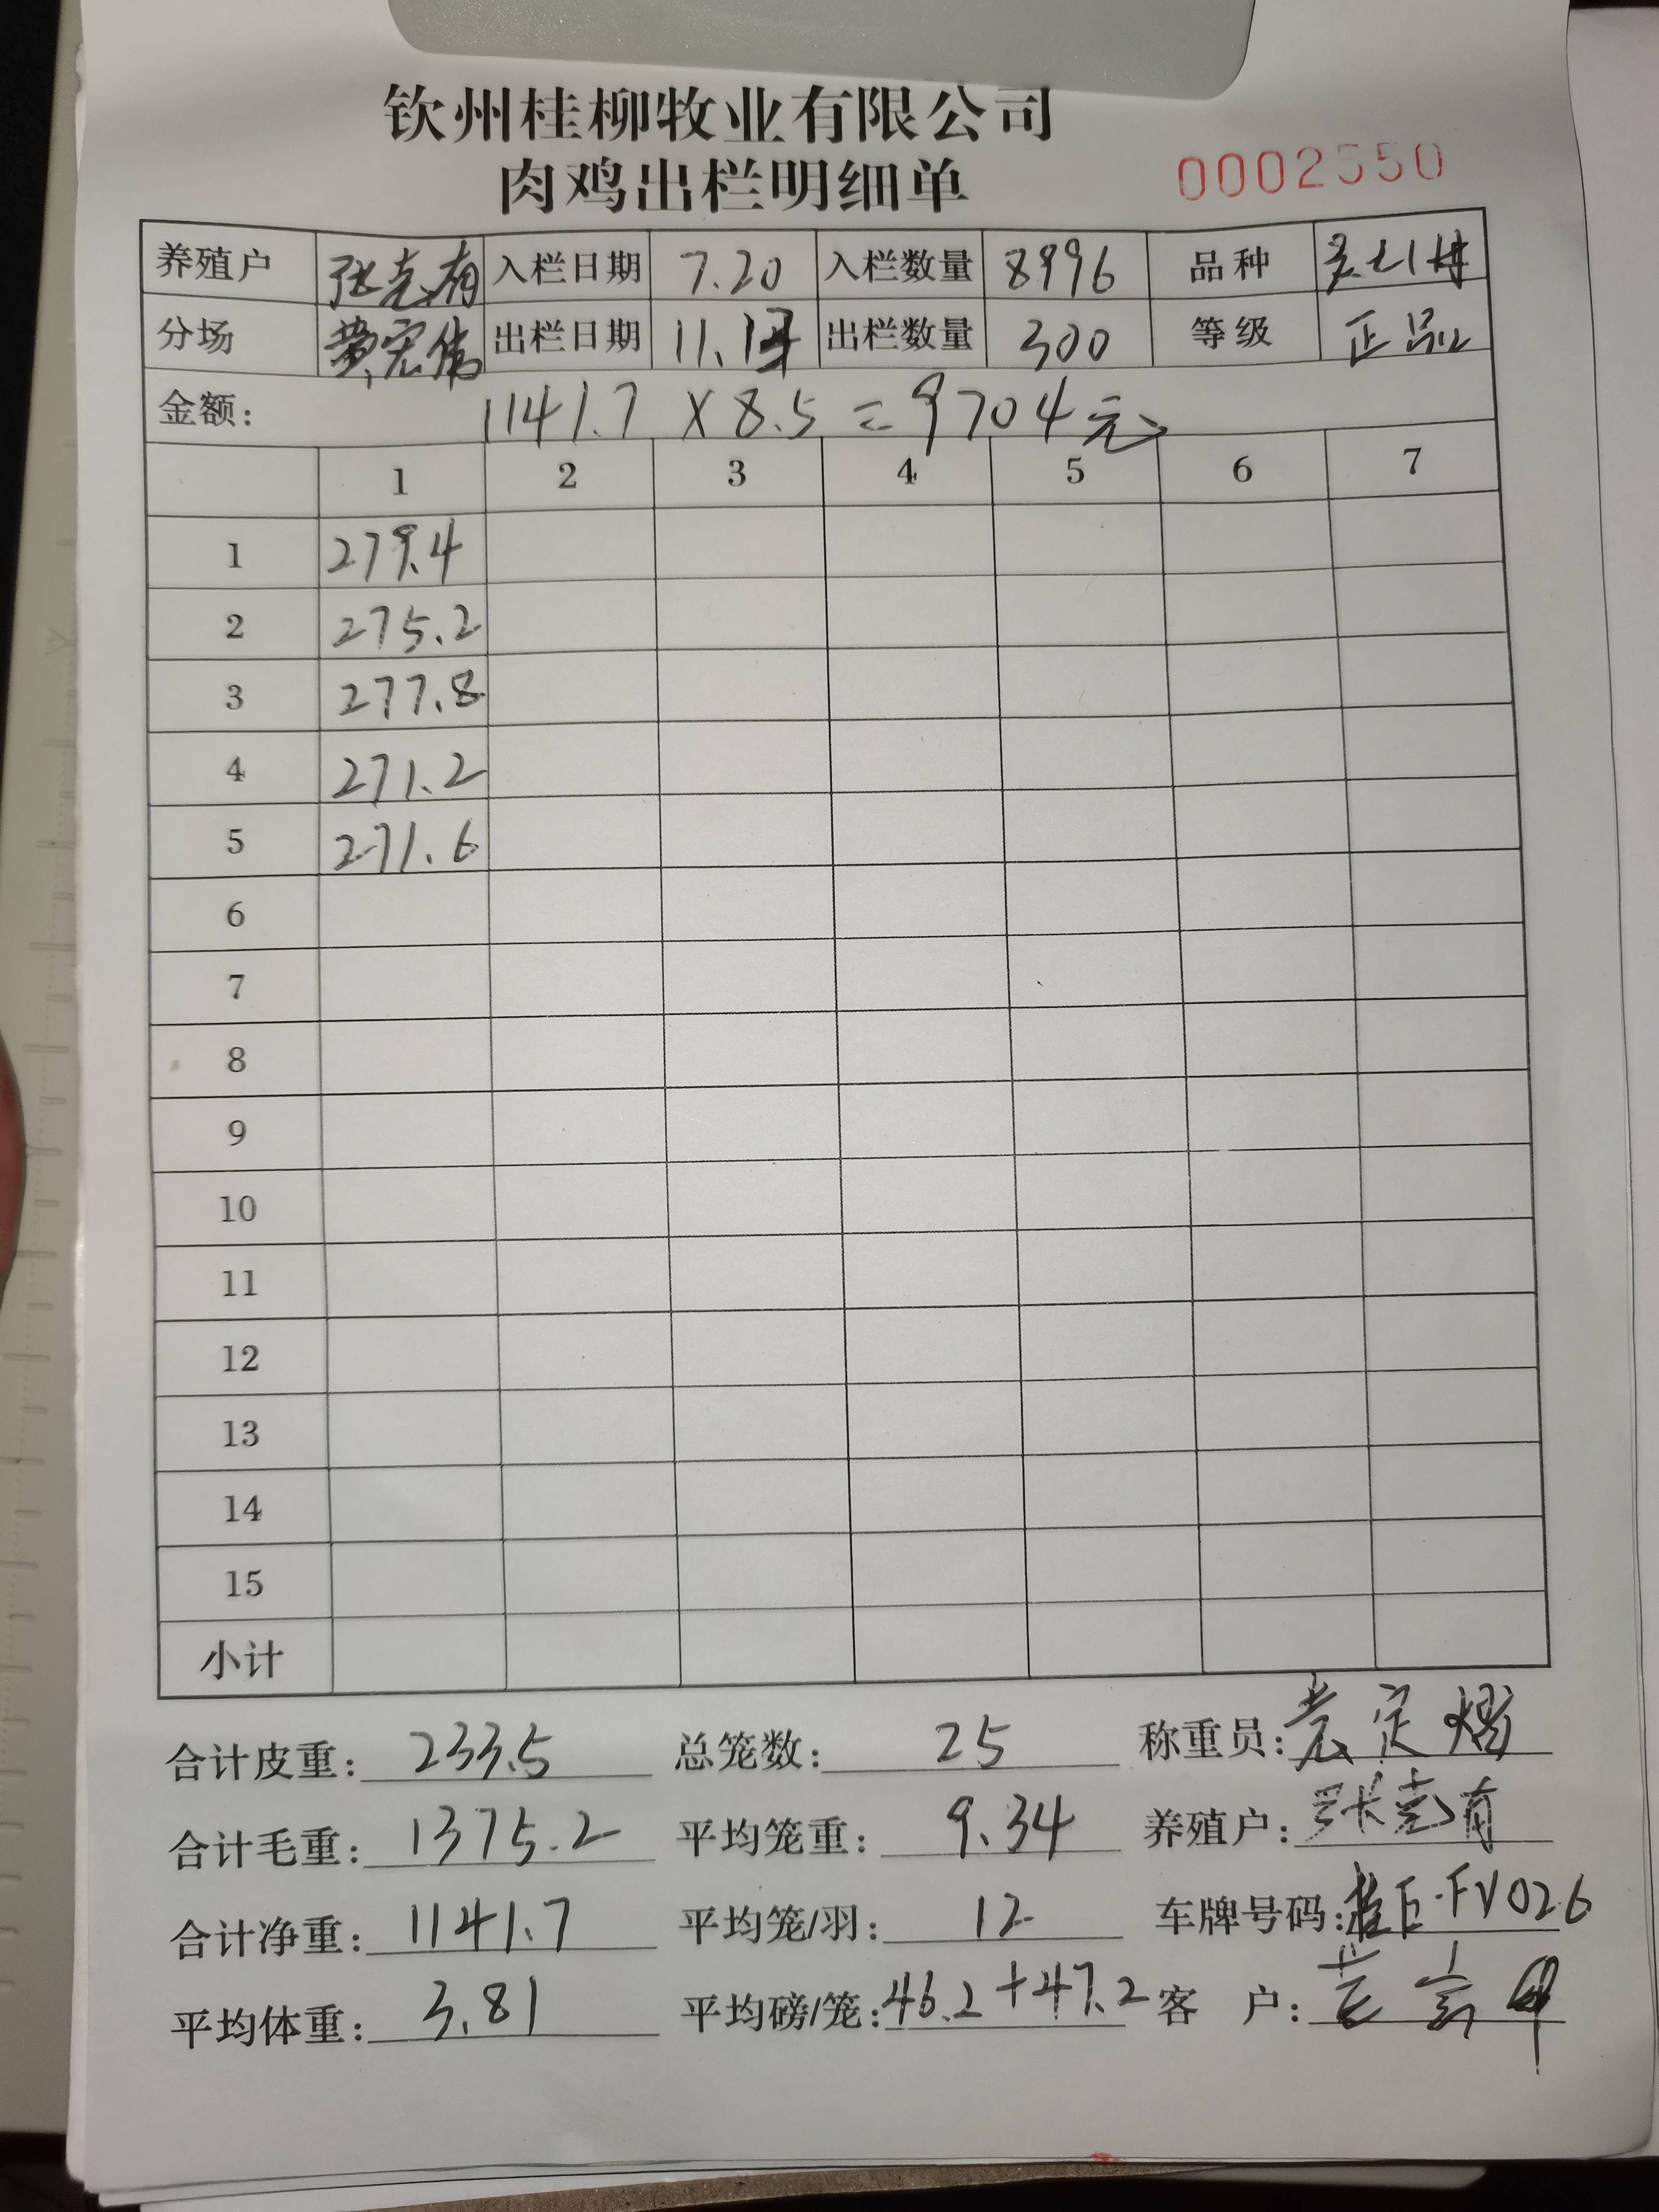 钦州桂柳牧业有限公司
肉鸡出栏明细单 0002550
养殖户 张克有 入栏日期 7.20 入栏数量 8996 品种
分场 黄宏伟 出栏日期 11. 出栏数量 300 等级 正品
金额: 1141.7 X 8.5 = 9704元
1 2 3 4 5 6 7
1 279.4
2 275.2
3 277.8
4 271.2
5 271.6
6
7
8
9
10
11
12
13
14
15
小计
合计皮重: 233.5 总笼数: 25 称重员: 定
合计毛重: 1375.2 平均笼重: 9.34 养殖户: 张克有
合计净重: 1141.7 平均笼/羽: 12 车牌号码: 桂E·FV026
平均体重: 3.81 平均磅/笼: 46.2+47.2 客 户: